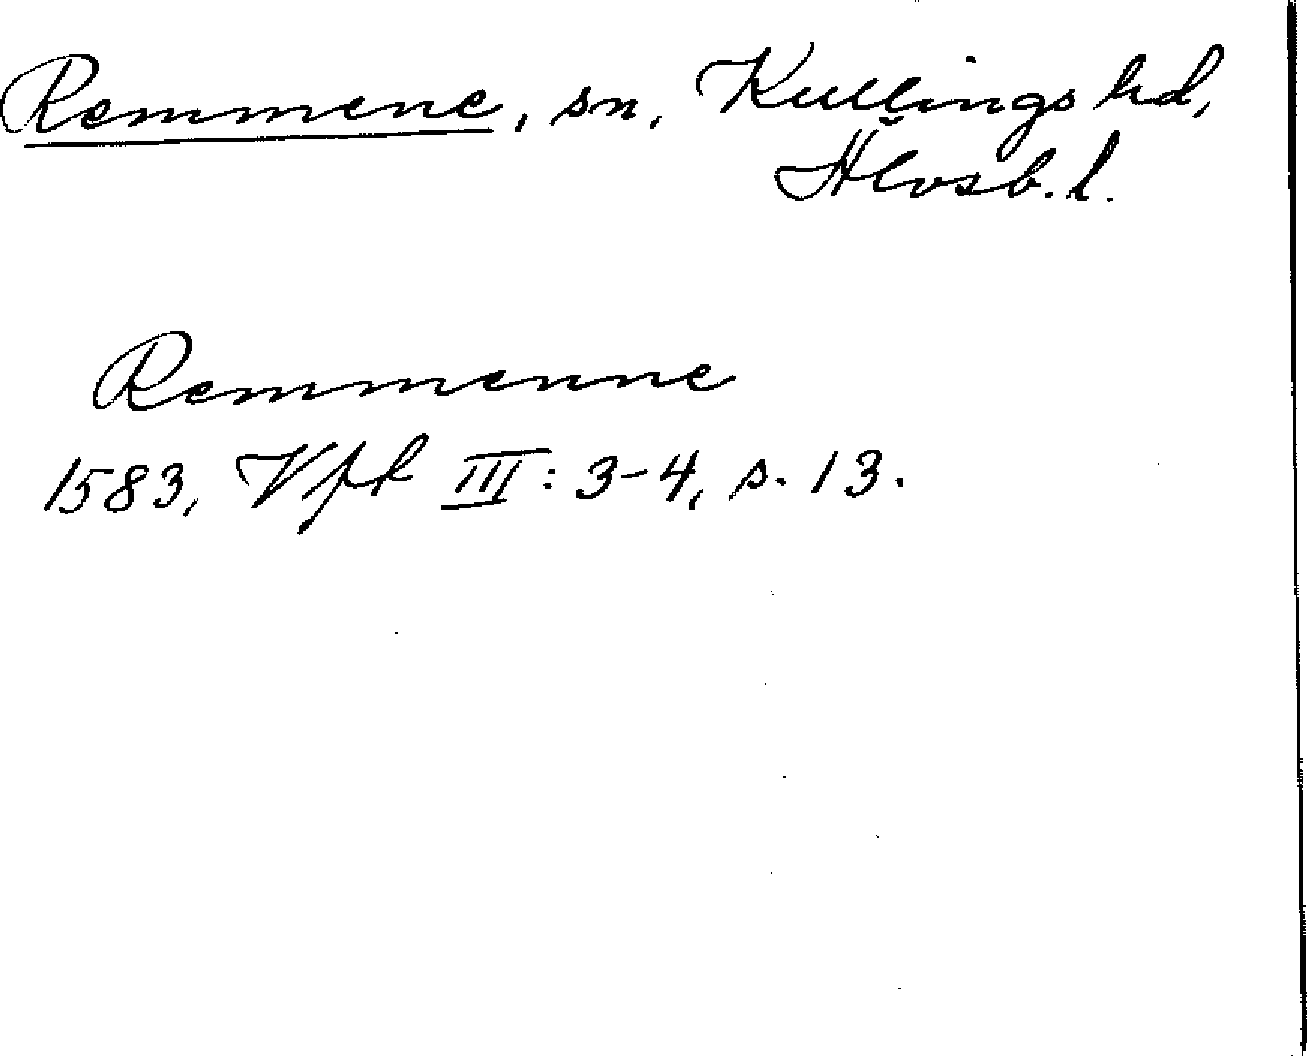 Remmene, sn, Kullings hd,
Älvsb. l.
Remmenne
1583, Vfk III: 3-4, s. 13.